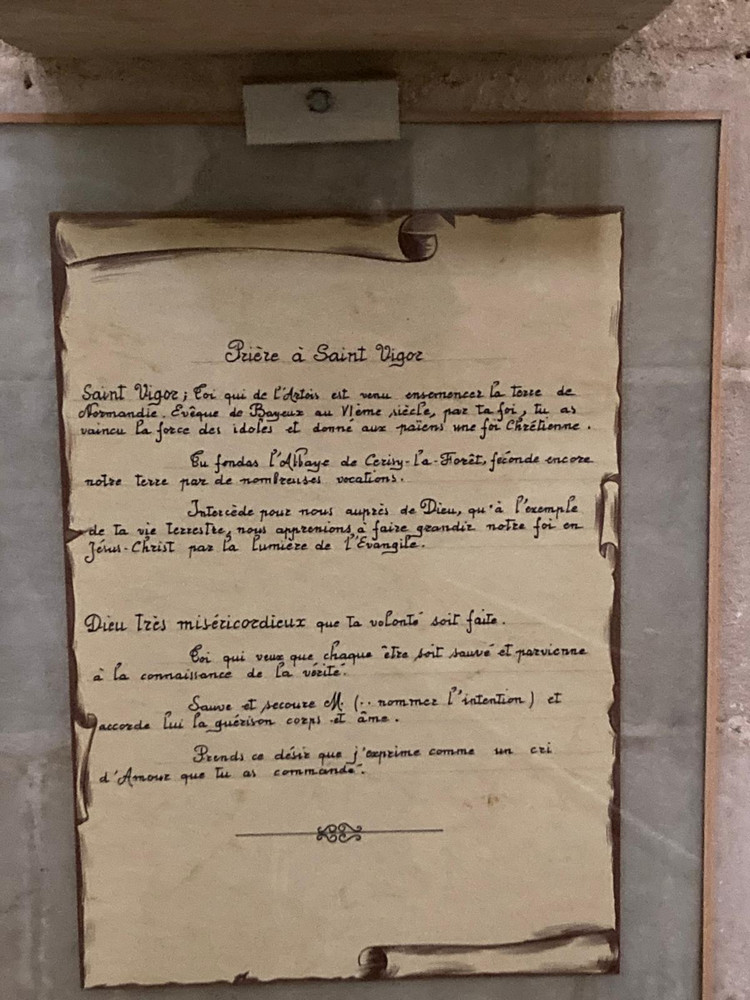 Prière à Saint Vigor
Saint Vigor ; Toi qui de l'Artois est venu ensemencer la terre de
Normandie. Evêque de Bayeux au VIème siècle, par ta foi, tu as
vaincu la force des idoles et donné aux païens une foi Chrétienne.
Tu fondas l'Abbaye de Cerisy-la-Forêt, féconde encore
notre terre par de nombreuses vocations.
Intercède pour nous auprès de Dieu, qu'à l'exemple
de ta vie terrestre, nous apprenions à faire grandir notre foi en
Jésus-Christ par la lumière de l'Evangile.
Dieu Très miséricordieux que ta volonté soit faite.
Toi qui veux que chaque être soit sauvé et parvienne
à la connaissance de la vérité.
Sauve et secoure M. (.. nommer l'intention) et
accorde lui la guérison corps et âme.
Prends ce désir que j'exprime comme un cri
d'Amour que tu as commandé.